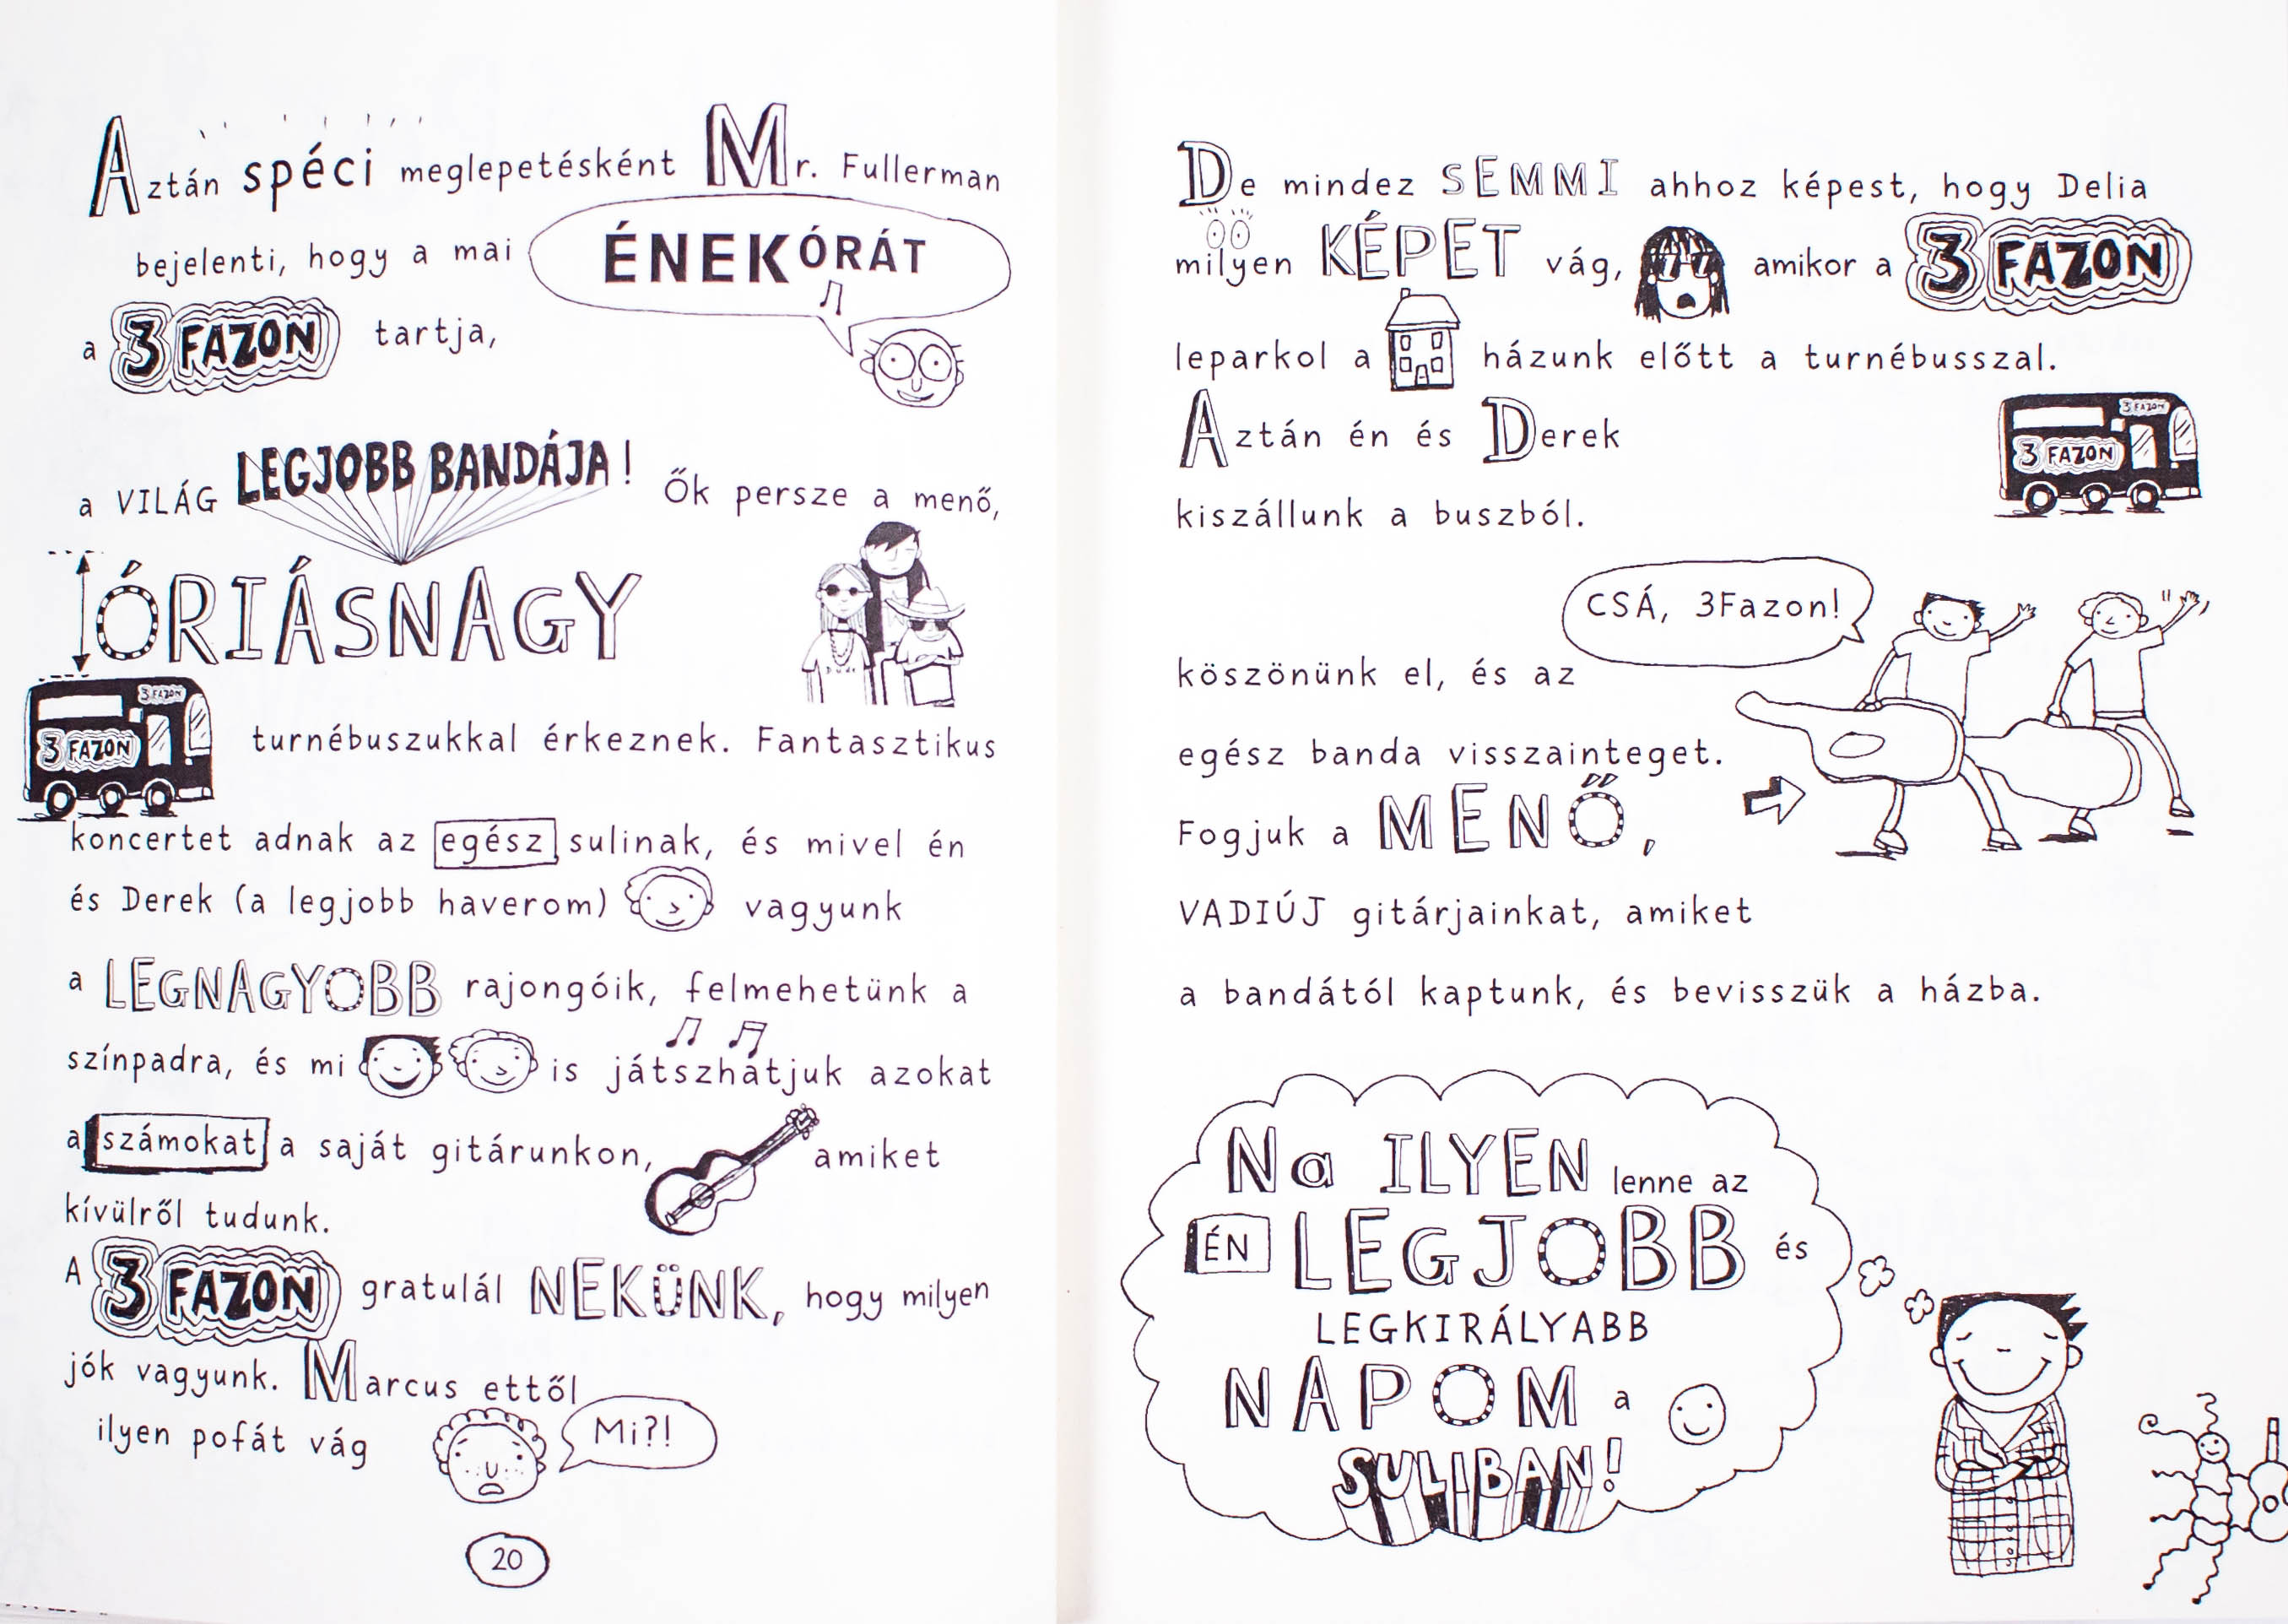 Aztán spéci meglepetésként Mr. Fullerman
bejelenti, hogy a mai ÉNEKÓRÁT
a 3 FAZON tartja,
a VILÁG LEGJOBB BANDÁJA! Ők persze a menő,
ÓRIÁSNAGY
3 FAZON
3 FAZON turnébuszukkal érkeznek. Fantasztikus
koncertet adnak az egész sulinak, és mivel én
és Derek (a legjobb haverom) vagyunk
a LEGNAGYOBB rajongóik, felmehetünk a
színpadra, és mi is játszhatjuk azokat
a számokat a saját gitárunkon, amiket
kívülről tudunk.
A 3 FAZON gratulál NEKÜNK, hogy milyen
jók vagyunk. Marcus ettől
ilyen pofát vág Mi?!
20
De mindez SEMMI ahhoz képest, hogy Delia
milyen KÉPET vág, amikor a 3 FAZON
leparkol a házunk előtt a turnébusszal.
Aztán én és Derek
3 FAZON
3 FAZON
kiszállunk a buszból.
CSÁ, 3Fazon!
köszönünk el, és az
egész banda visszainteget.
Fogjuk a MENŐ,
VADIÚJ gitárjainkat, amiket
a bandától kaptunk, és bevisszük a házba.
Na ILYEN lenne az
ÉN LEGJOBB és
LEGKIRÁLYABB
NAPOM a
SULIBAN!